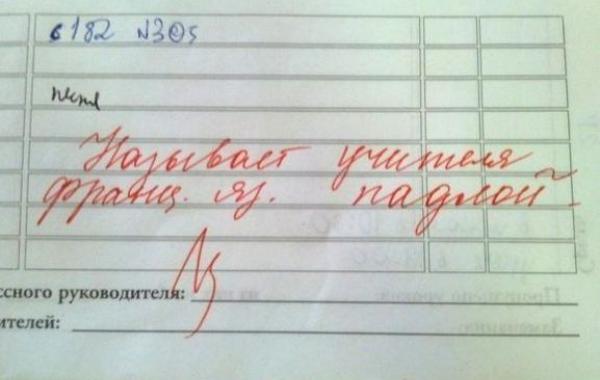 с 182 №3 05
песня
Называет учителя
франц. яз. падлой
ссного руководителя:
ителей: